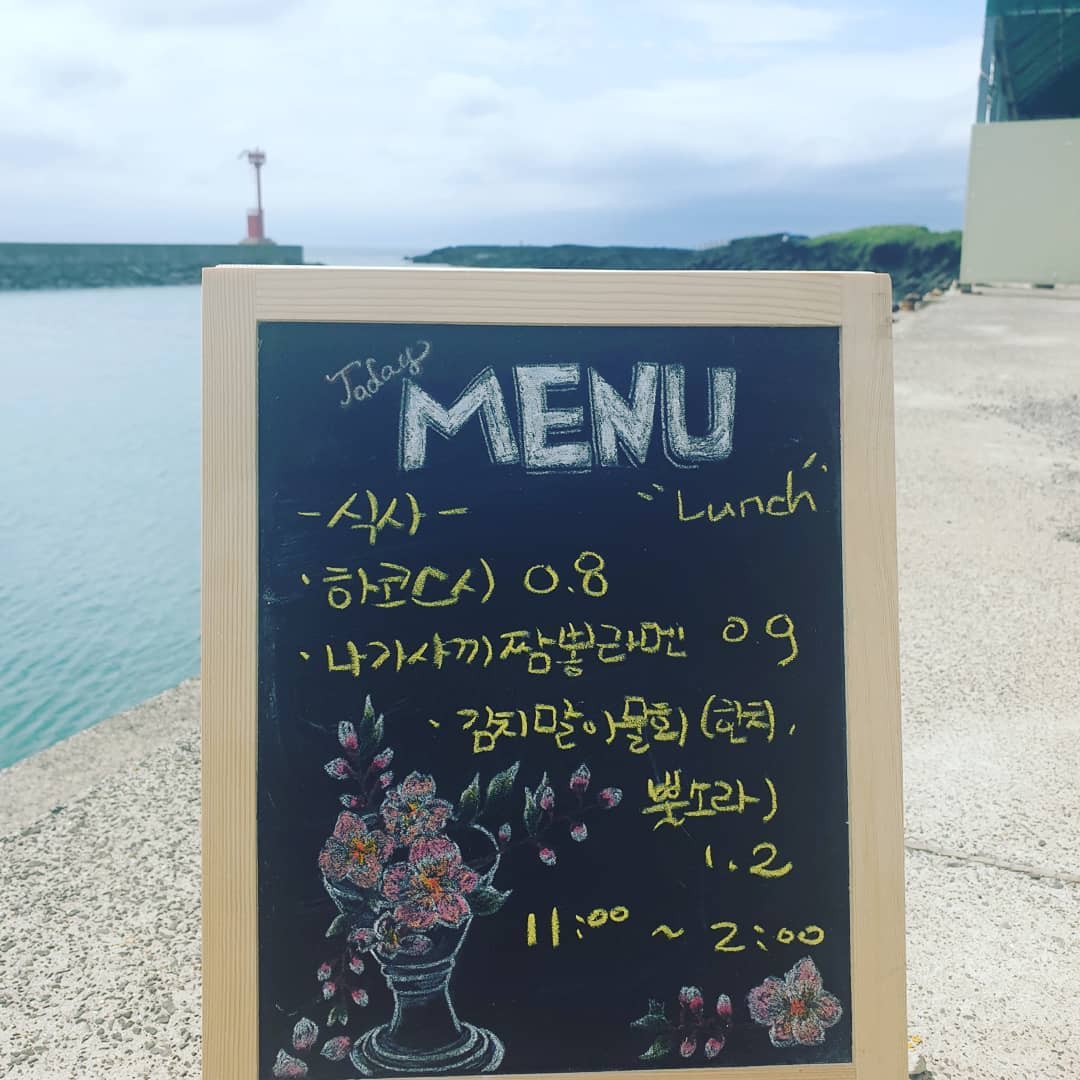 Today
MENU
"Lunch"
-식사-
· 하코(시) 0.8
· 나가사끼짬뽕라멘 0.9
· 김치말이물회(한치,
뿔소라)
1.2
11:00 ~ 2:00